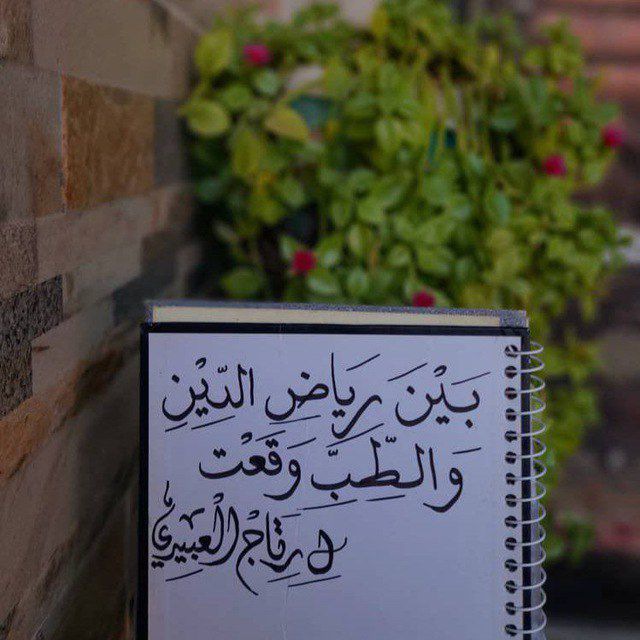 بَيْنَ رِيَاضِ الدِّيْنِ
وَالطِّبِّ وَقَعْت
لـِ رِتَاجْ الْعَبِيرِي